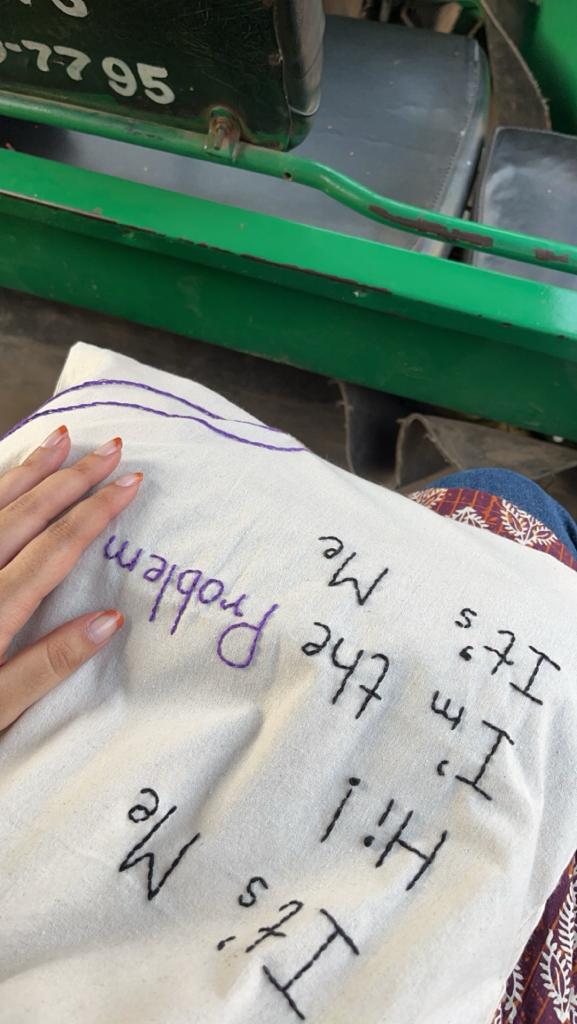 -7795
It's Me
Hi!
I'm the Problem
It's Me